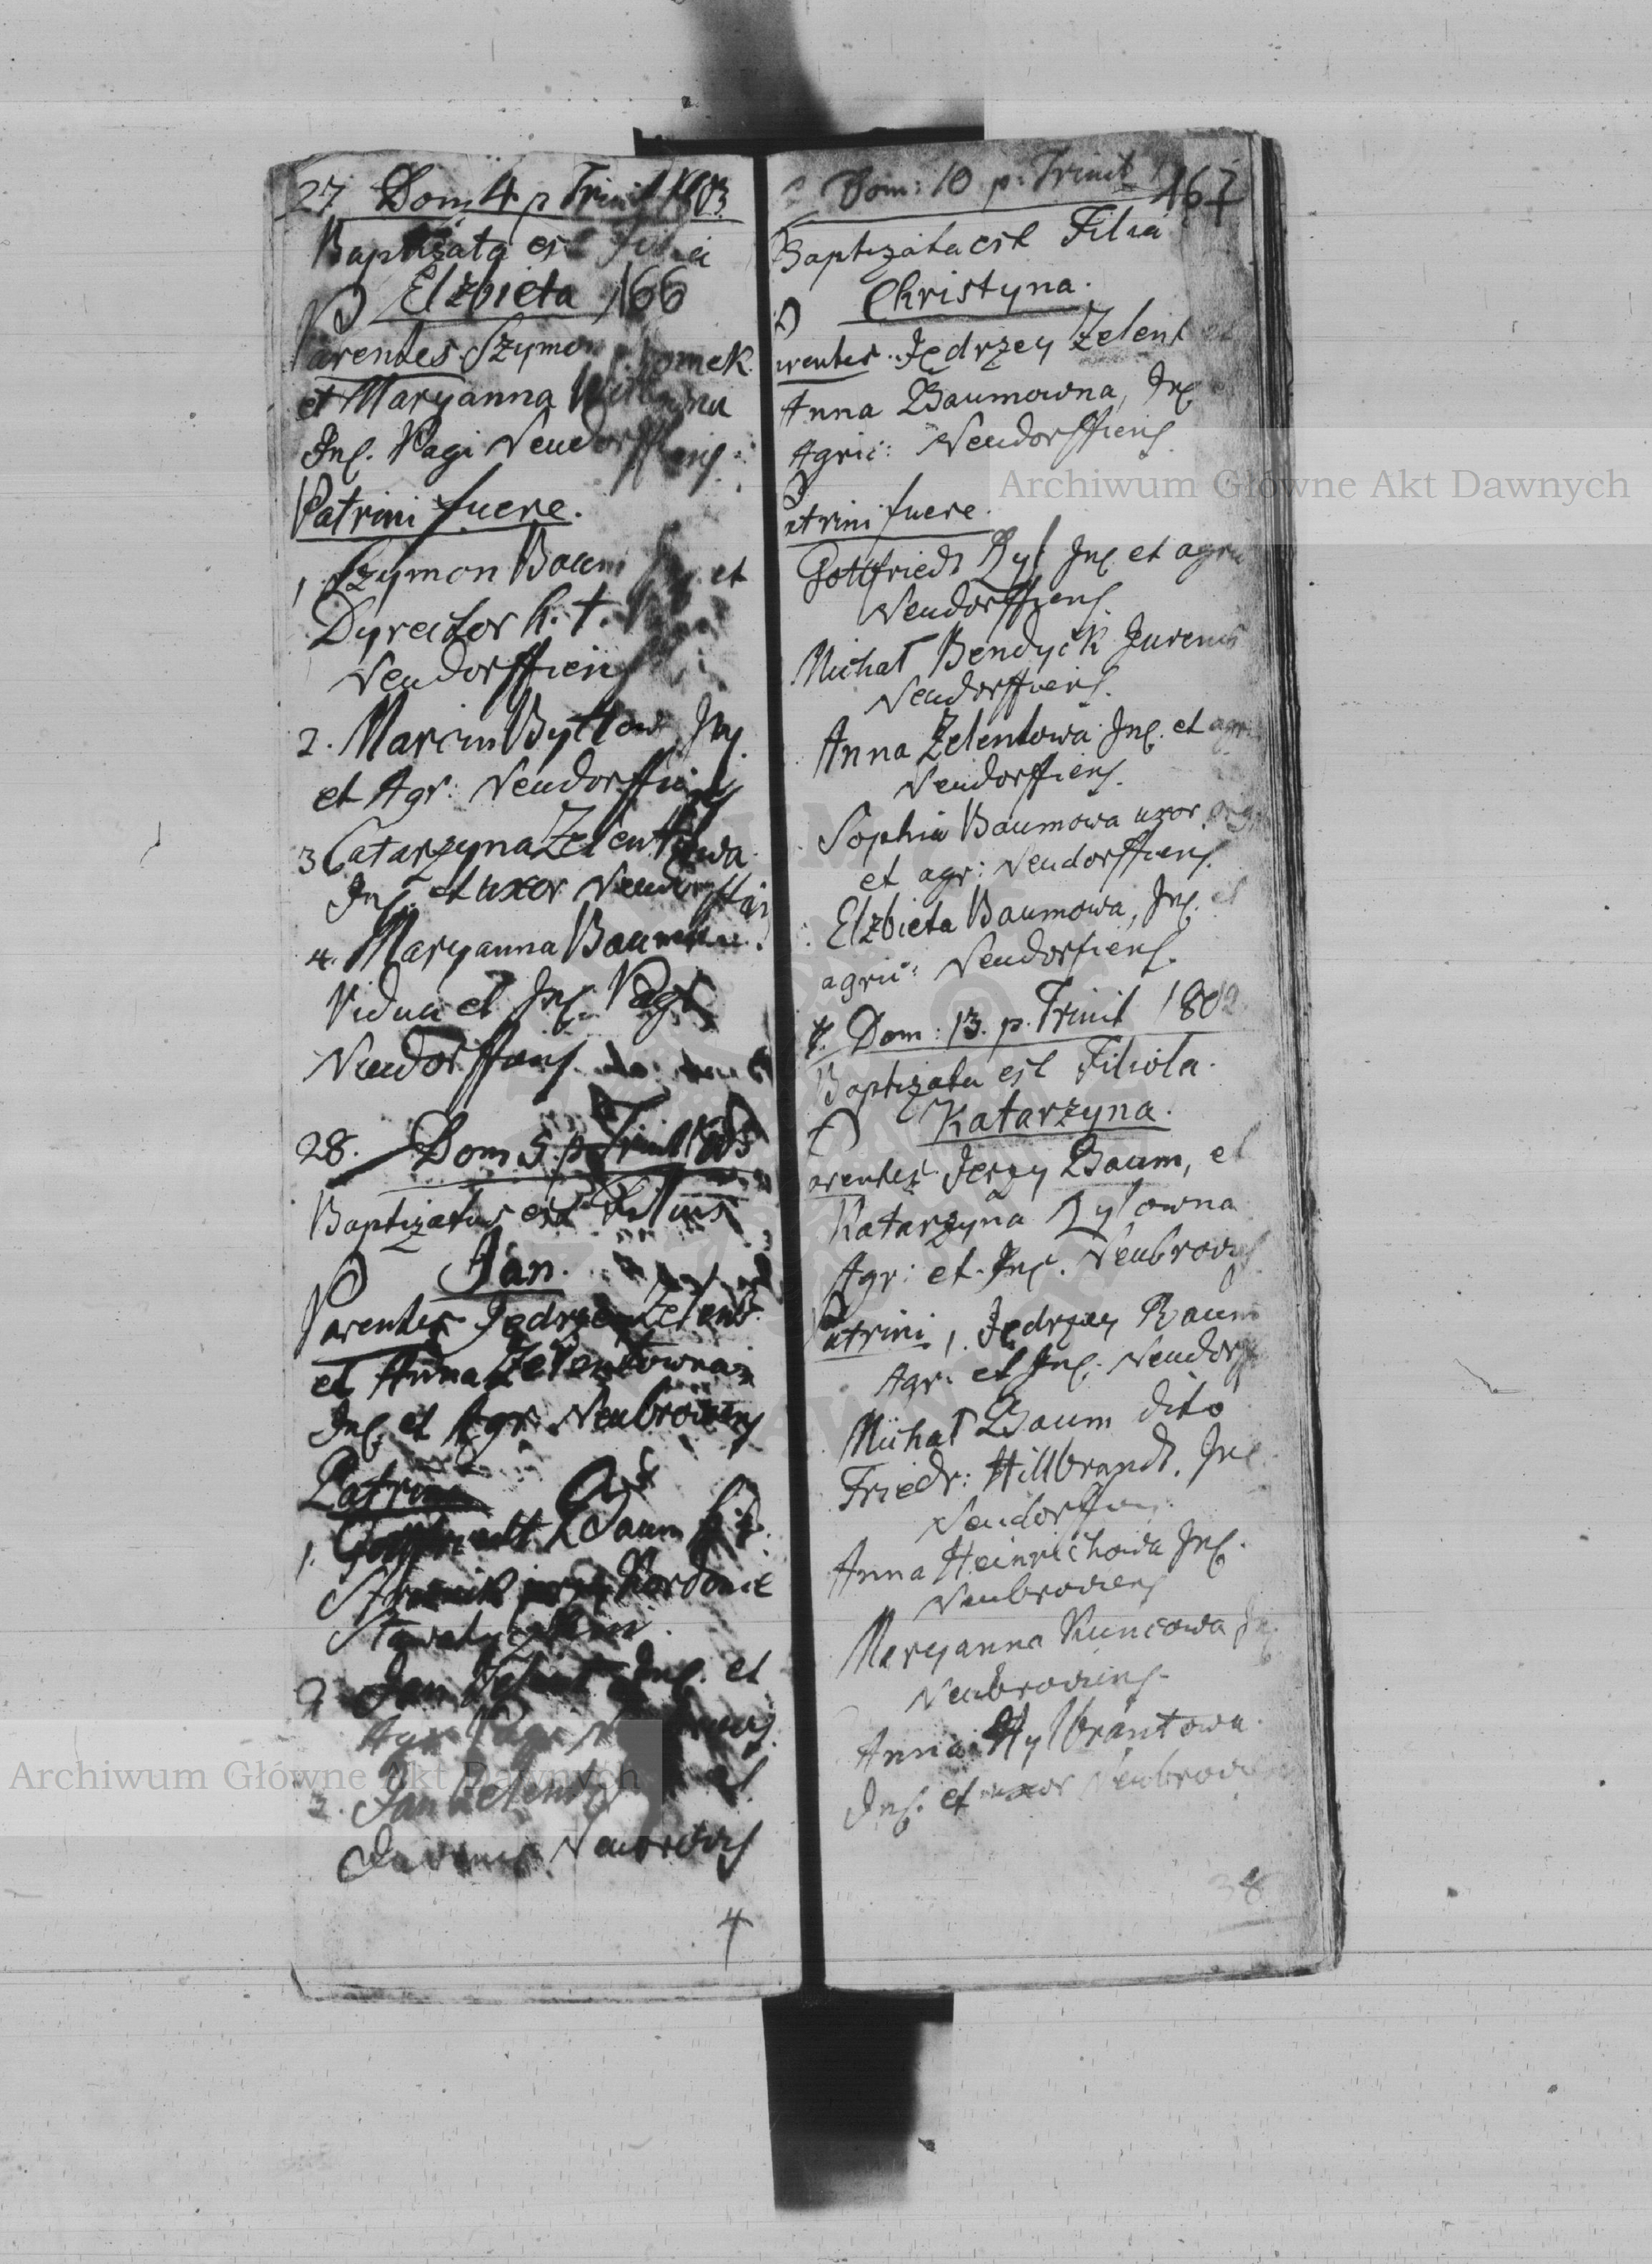 27 Dom 4 p Trinit 1803
Baptizata est filia
Elzbieta 166
Parentes Szymon
et Maryanna
Inq. Pagi Neudorffiens:
Patrini fuere.
1, Szymon Baum et
Dyrector h. t.
Neudorffiens
2. Marcin Byttow Inq.
et Agr: Neudorffiens
3 Catarzyna Zelentowa
Inq. et uxor Neudorffiens
4. Maryanna Baumowa
Vidua et Inq. Pagi
Neudorffiens
28. Dom 5. p Trinit 1803
Baptizatus est Filius
Jan.
Parentes Jedrzey Zelent
et Anna Zelentowna
Inq. et Agr. Neubroviens
Patrini
1. Gottfriedt Baum
Strasnik przy Kordonie
2 Jan Zelent Inq. et
Agr. Pagi
3. Jan Zelent
Juvenis Neubroviens
4
Dom: 10 p. Trinit
167
Baptizata est Filia
Christyna.
Parentes. Jędrzey Zelent et
Anna Baumowna, Inq. et
Agric: Neudorffiens
Patrini fuere.
Gottfriedt Ryl Inq. et agric
Neudorffiens.
Michał Bendyck Juvenis
Neudorffiens.
Anna Zelentowa Inq. et agr
Neudorffiens.
Sophia Baumowa uxor
et agr: Neudorffiens.
Elzbieta Baumowa, Inq. et
agric: Neudorfiens.
Dom: 13. p. Trinit 1802
Baptizata est Filiola.
Katarzyna.
Parentes Jerzy Baum, et
Katarzyna Rylowna
Agr: et Inq. Neubroviens
Patrini 1, Jędrzey Baum
Agr. et Inq. Neudorff
Michał Baum dito
Friedr: Hillbrandt, Inq.
Neudorffiens.
Anna Heinrichowa Inq.
Neubroviens
Maryanna Kuncowa
Neubroviens
Anna Hylbrantowa
Inq. et uxor Neubroviens
38
Archiwum Główne Akt Dawnych
Archiwum Główne Akt Dawnych